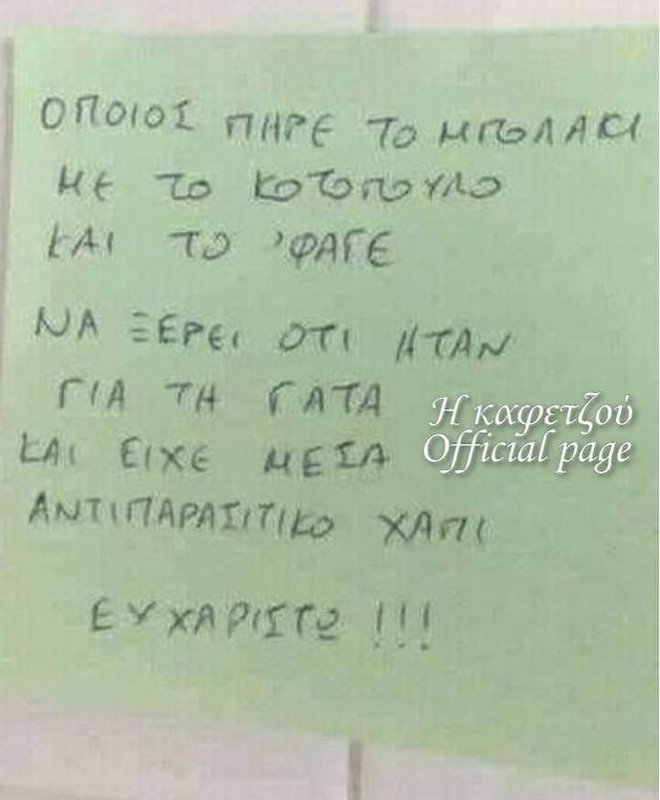 ΟΠΟΙΟΣ ΠΗΡΕ ΤΟ ΜΠΟΛΑΚΙ
ΜΕ ΤΟ ΚΟΤΟΠΟΥΛΟ
ΚΑΙ ΤΟ 'ΦΑΓΕ
ΝΑ ΞΕΡΕΙ ΟΤΙ ΗΤΑΝ
ΓΙΑ ΤΗ ΓΑΤΑ
ΚΑΙ ΕΙΧΕ ΜΕΣΑ
ΑΝΤΙΠΑΡΑΣΙΤΙΚΟ ΧΑΠΙ
ΕΥΧΑΡΙΣΤΩ !!!
Η καφετζού
Official page